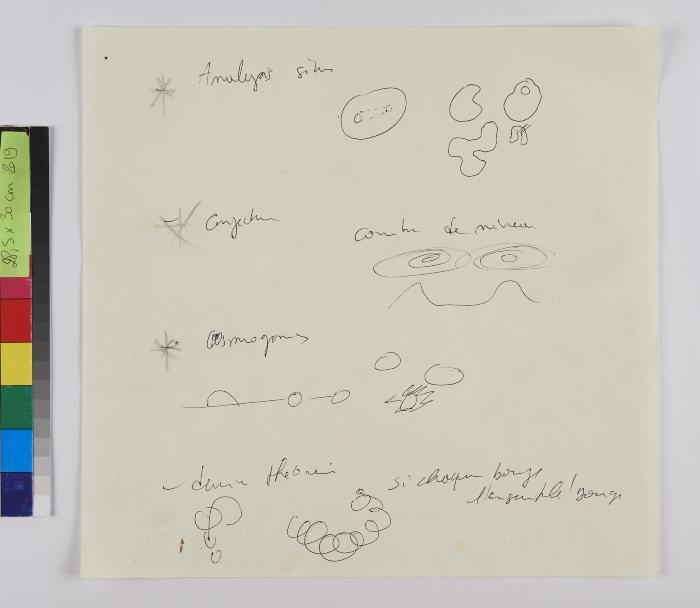 28,5 x 30 cm 2019
Analysis situs
Conjecture
courbe de niveau
Cosmogonies
dernier théorème
si chaque bouge
l'ensemble bouge